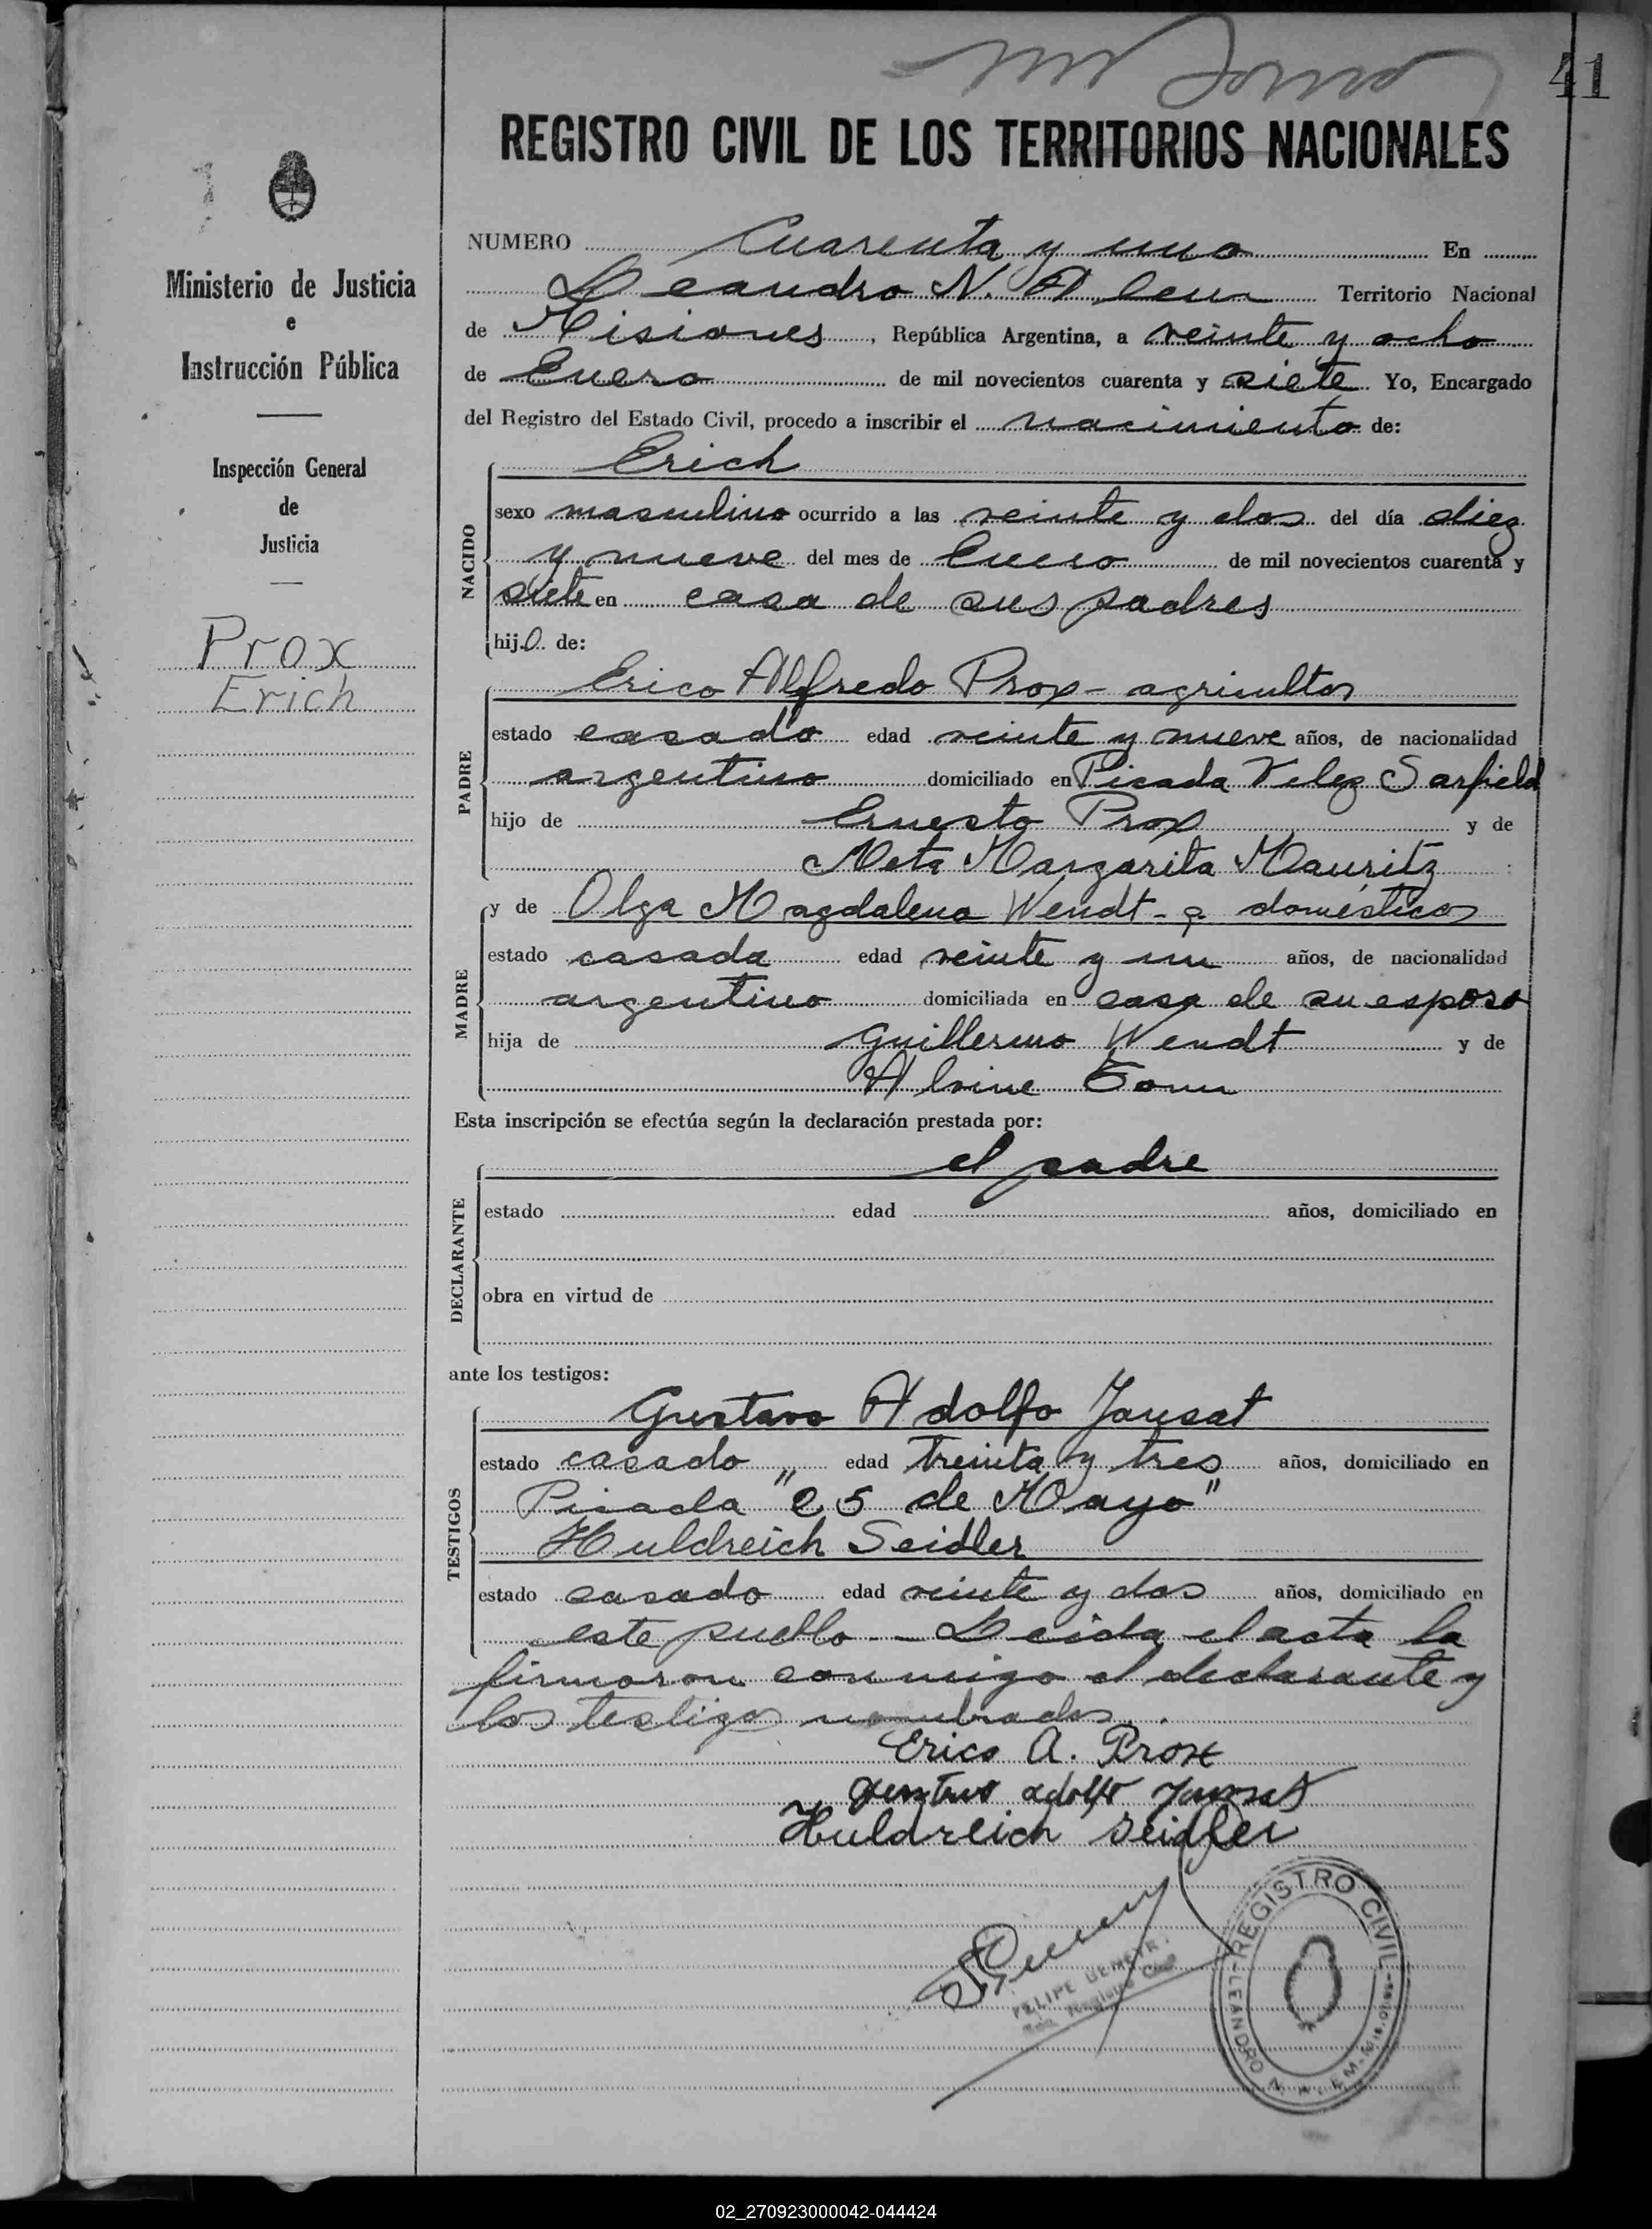 41
REGISTRO CIVIL DE LOS TERRITORIOS NACIONALES
Ministerio de Justicia
e
Instrucción Pública
Inspección General
de
Justicia
Prox
Erich
NUMERO Cuarenta y uno En
Leandro N. Alem Territorio Nacional
de Misiones, República Argentina, a veinte y ocho
de Enero de mil novecientos cuarenta y siete Yo, Encargado
del Registro del Estado Civil, procedo a inscribir el nacimiento de:
NACIDO
Erich
sexo masculino ocurrido a las veinte y dos del día diez
y nueve del mes de Enero de mil novecientos cuarenta y
siete en casa de sus padres
hijo de:
PADRE
Erico Alfredo Prox - agricultor
estado casado edad veinte y nueve años, de nacionalidad
argentino domiciliado en Picada Velez Sarfield
hijo de Ernesto Prox y de
Meta Margarita Mauritz
MADRE
y de Olga Magdalena Wendt - q. domésticos
estado casada edad veinte y un años, de nacionalidad
argentino domiciliada en casa de su esposo
hija de Guillermo Wendt y de
Alvine Tonn
Esta inscripción se efectúa según la declaración prestada por:
DECLARANTE
el padre
estado edad años, domiciliado en
obra en virtud de
ante los testigos:
TESTIGOS
Gustavo Adolfo Jansat
estado casado edad treinta y tres años, domiciliado en
Picada "25 de Mayo"
Huldreich Seidler
estado casado edad veinte y dos años, domiciliado en
este pueblo - Leida el acta la
firmaron conmigo el declarante y
los testigos nombrados.
Erico A. Prox
Gustavo Adolfo Jansat
Huldreich Seidler
FELIPE
Registro Civil
REGISTRO CIVIL
LEANDRO N. ALEM - MISIONES
02_270923000042-044424